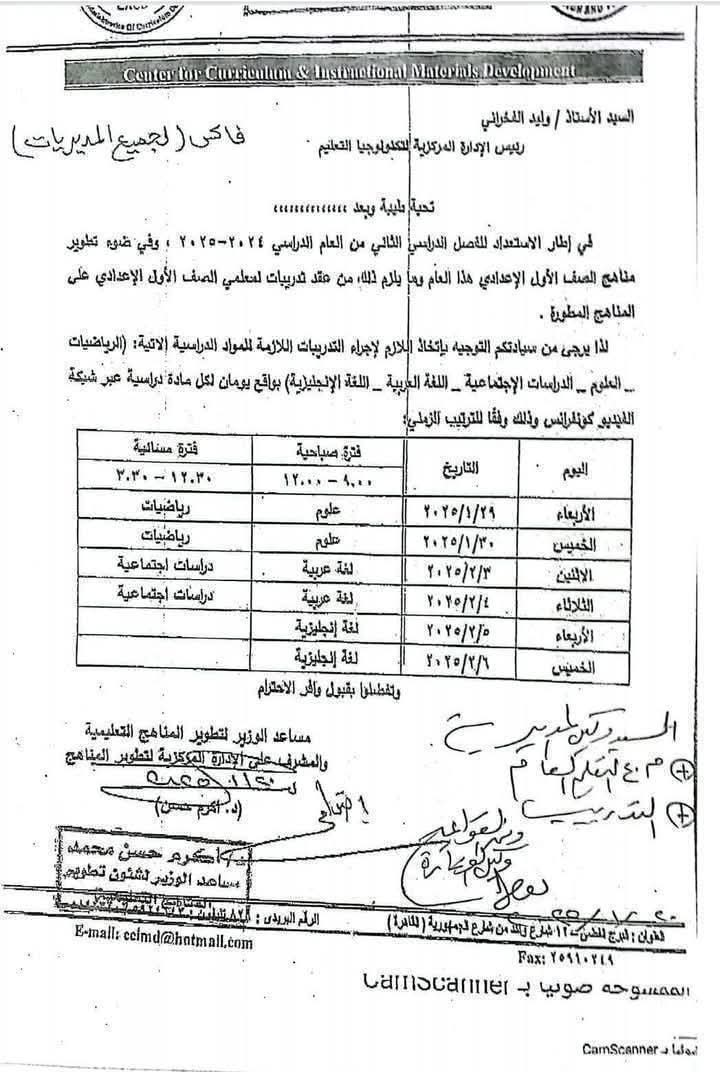 Center for Curriculum & Instructional Materials Development
السيد الأستاذ / وليد الفخراني
فاكس (لجميع المديريات)
رئيس الإدارة المركزية لتكنولوجيا التعليم
تحية طيبة وبعد ،،،،،،،،،،،،،،
في إطار الاستعداد للفصل الدراسي الثاني من العام الدراسي ٢٠٢٤-٢٠٢٥ ، وفي ضوء تطوير
مناهج الصف الأول الإعدادي هذا العام وما يلزم ذلك من عقد تدريبات لمعلمي الصف الأول الإعدادي على
المناهج المطورة .
لذا يرجى من سيادتكم التوجيه بإتخاذ اللازم لإجراء التدريبات اللازمة للمواد الدراسية الاتية: (الرياضيات
_ العلوم _ الدراسات الإجتماعية _ اللغة العربية _ اللغة الإنجليزية) بواقع يومان لكل مادة دراسية عبر شبكة
الفيديو كونفرانس وذلك وفقًا للترتيب الزمني:
اليوم التاريخ فترة صباحية فترة مسائية
٩.٠٠ – ١٢.٠٠ ١٢.٣٠ – ٣.٣٠
الأربعاء ٢٠٢٥/١/٢٩ علوم رياضيات
الخميس ٢٠٢٥/١/٣٠ علوم رياضيات
الاثنين ٢٠٢٥/٢/٣ لغة عربية دراسات اجتماعية
الثلاثاء ٢٠٢٥/٢/٤ لغة عربية دراسات اجتماعية
الأربعاء ٢٠٢٥/٢/٥ لغة إنجليزية
الخميس ٢٠٢٥/٢/٦ لغة إنجليزية
وتفضلوا بقبول وافر الاحترام
مساعد الوزير لتطوير المناهج التعليمية
والمشرف على الإدارة المركزية لتطوير المناهج
(د. أكرم حسن)
السيد وكيل المديرية
م.ع التعليم العام
التدريب
أكرم حسن محمد
مساعد الوزير لشئون تطوير
المناهج التعليمية
العنوان : البرج الفضي – ١٢ شارع متفرع من شارع الجمهورية ( القاهرة )
الرقم البريدى :
E-mail: ccimd@hotmail.com
Fax: ٢٥٩١٠٢٤٩
الممسوحة ضوئيا بـ CamScanner
ضوئيا بـ CamScanner